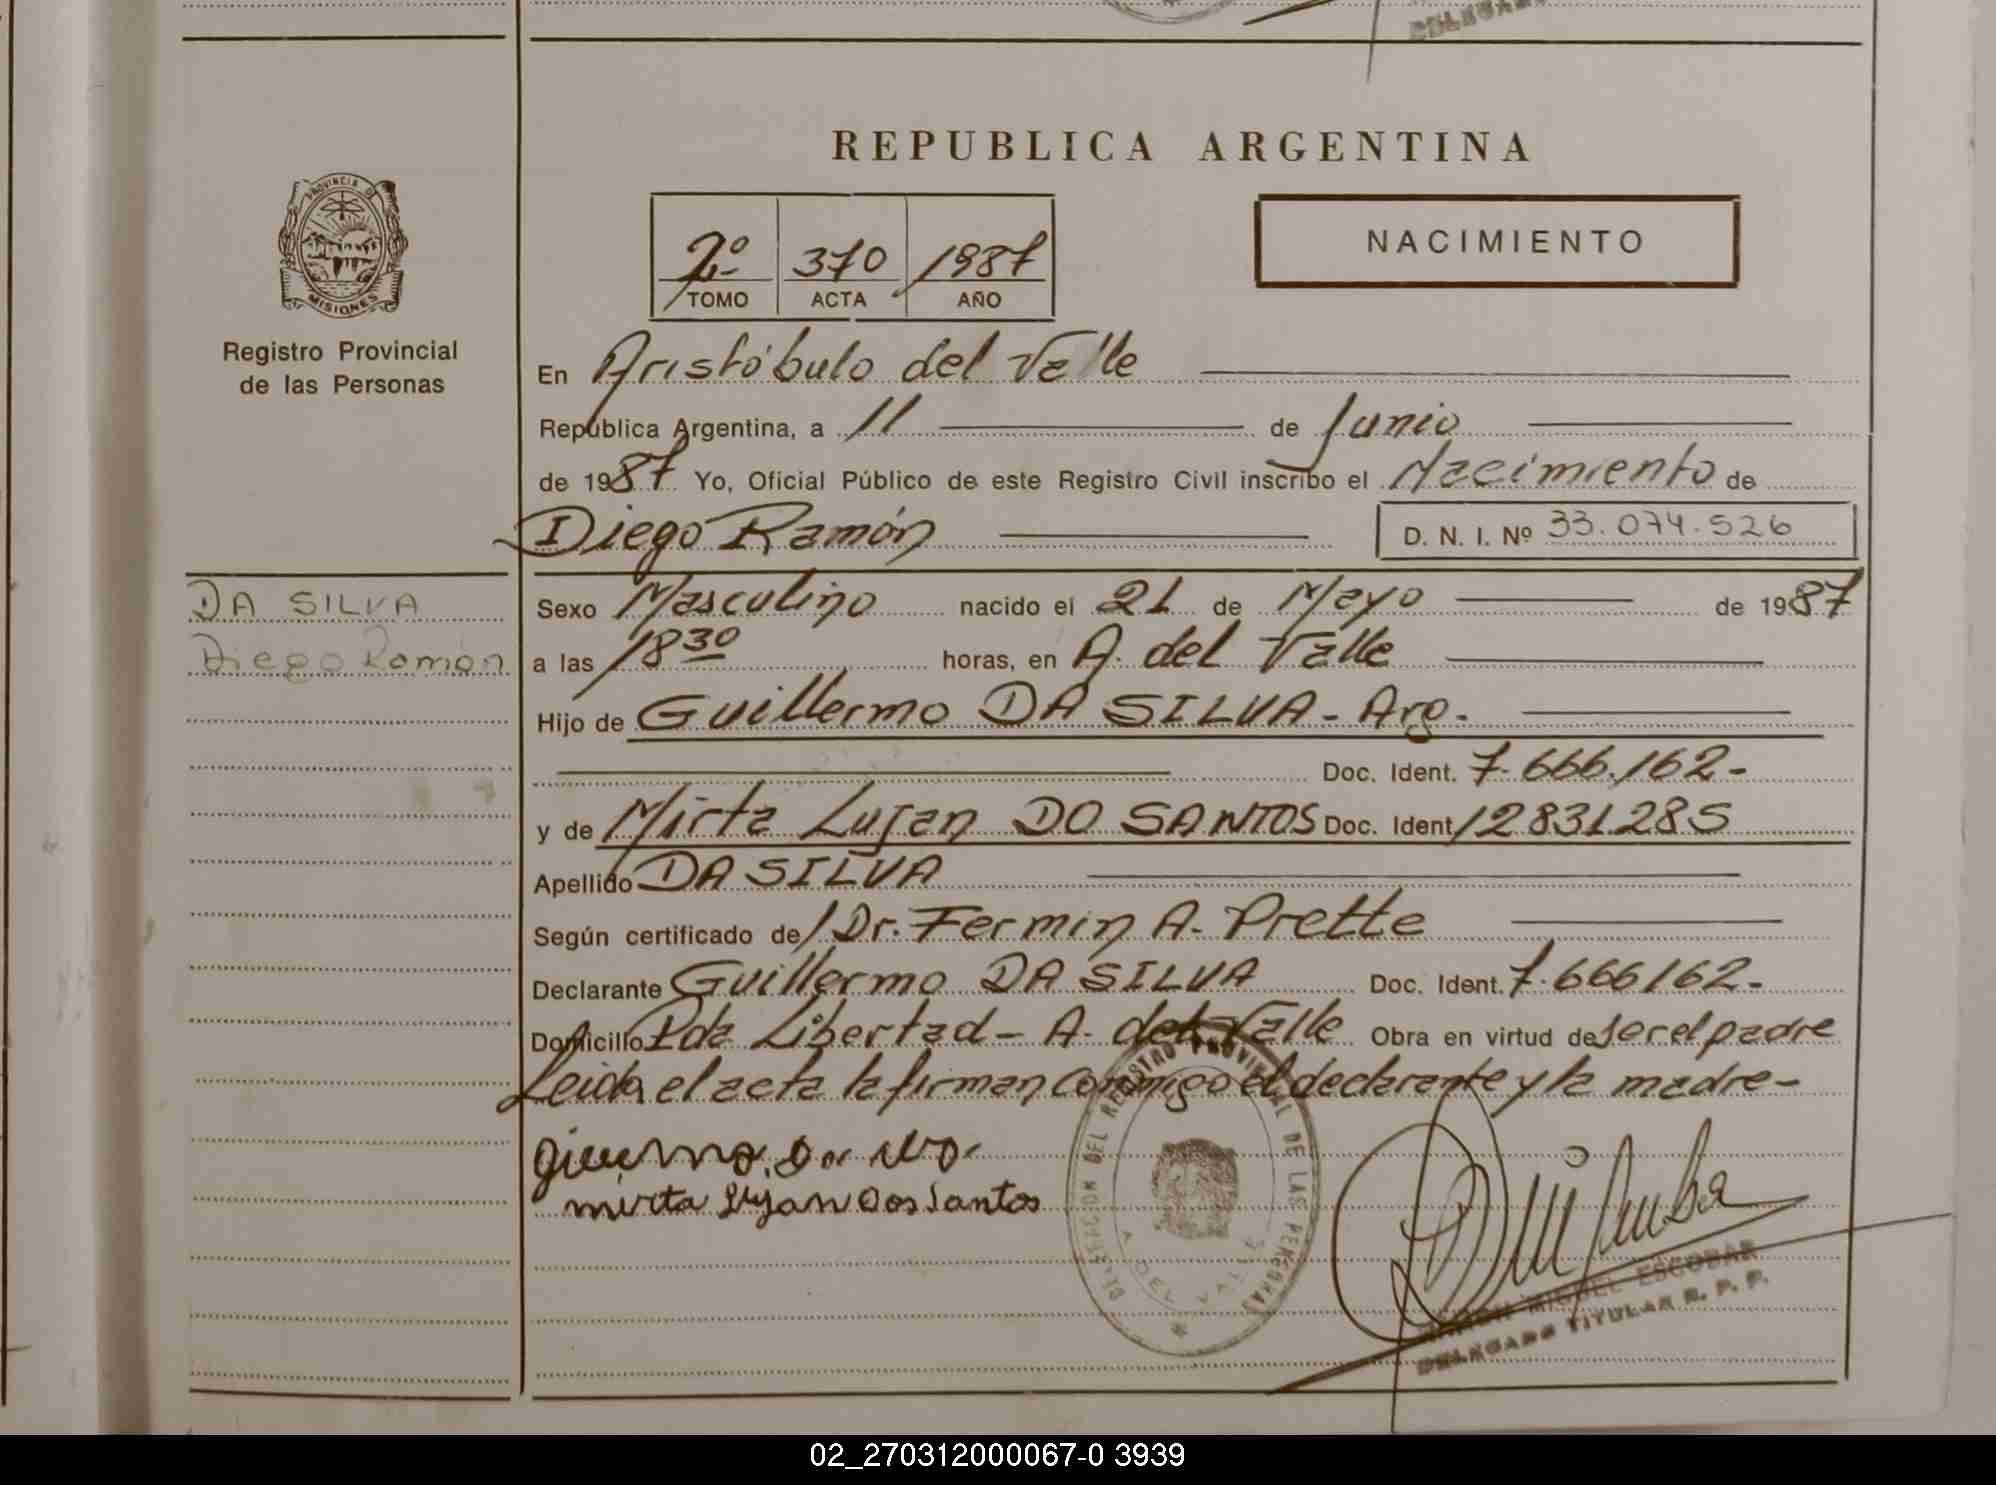 DELEGADO
REPUBLICA ARGENTINA
PROVINCIA D
MISIONES
Registro Provincial
de las Personas
2º 370 1987
TOMO ACTA AÑO
NACIMIENTO
En Aristóbulo del Valle
República Argentina, a 11 de Junio
de 1987 Yo, Oficial Público de este Registro Civil inscribo el Nacimiento de
Diego Ramón D. N. I. Nº 33.074.526
DA SILVA
Diego Ramón
Sexo Masculino nacido el 21 de Mayo de 1987
a las 18 30 horas, en A. del Valle
Hijo de Guillermo DA SILVA - Arg.
Doc. Ident. 7.666.162-
y de Mirta Lujan DO SANTOS Doc. Ident. 12831285
Apellido DA SILVA
Según certificado de Dr. Fermin A. Prette
Declarante Guillermo DA SILVA Doc. Ident. 7.666162-
Domicilio Pda Libertad - A. del Valle Obra en virtud de ser el padre
Leida el acta la firman conmigo el declarante y la madre-
mirta Lujan Dos Santos
DELEGACION DEL REGISTRO PROVINCIAL DE LAS PERSONAS
A. DEL VALLE
MIGUEL ESCOBAR
DELEGADO TITULAR R. P. P.
02_270312000067-0 3939